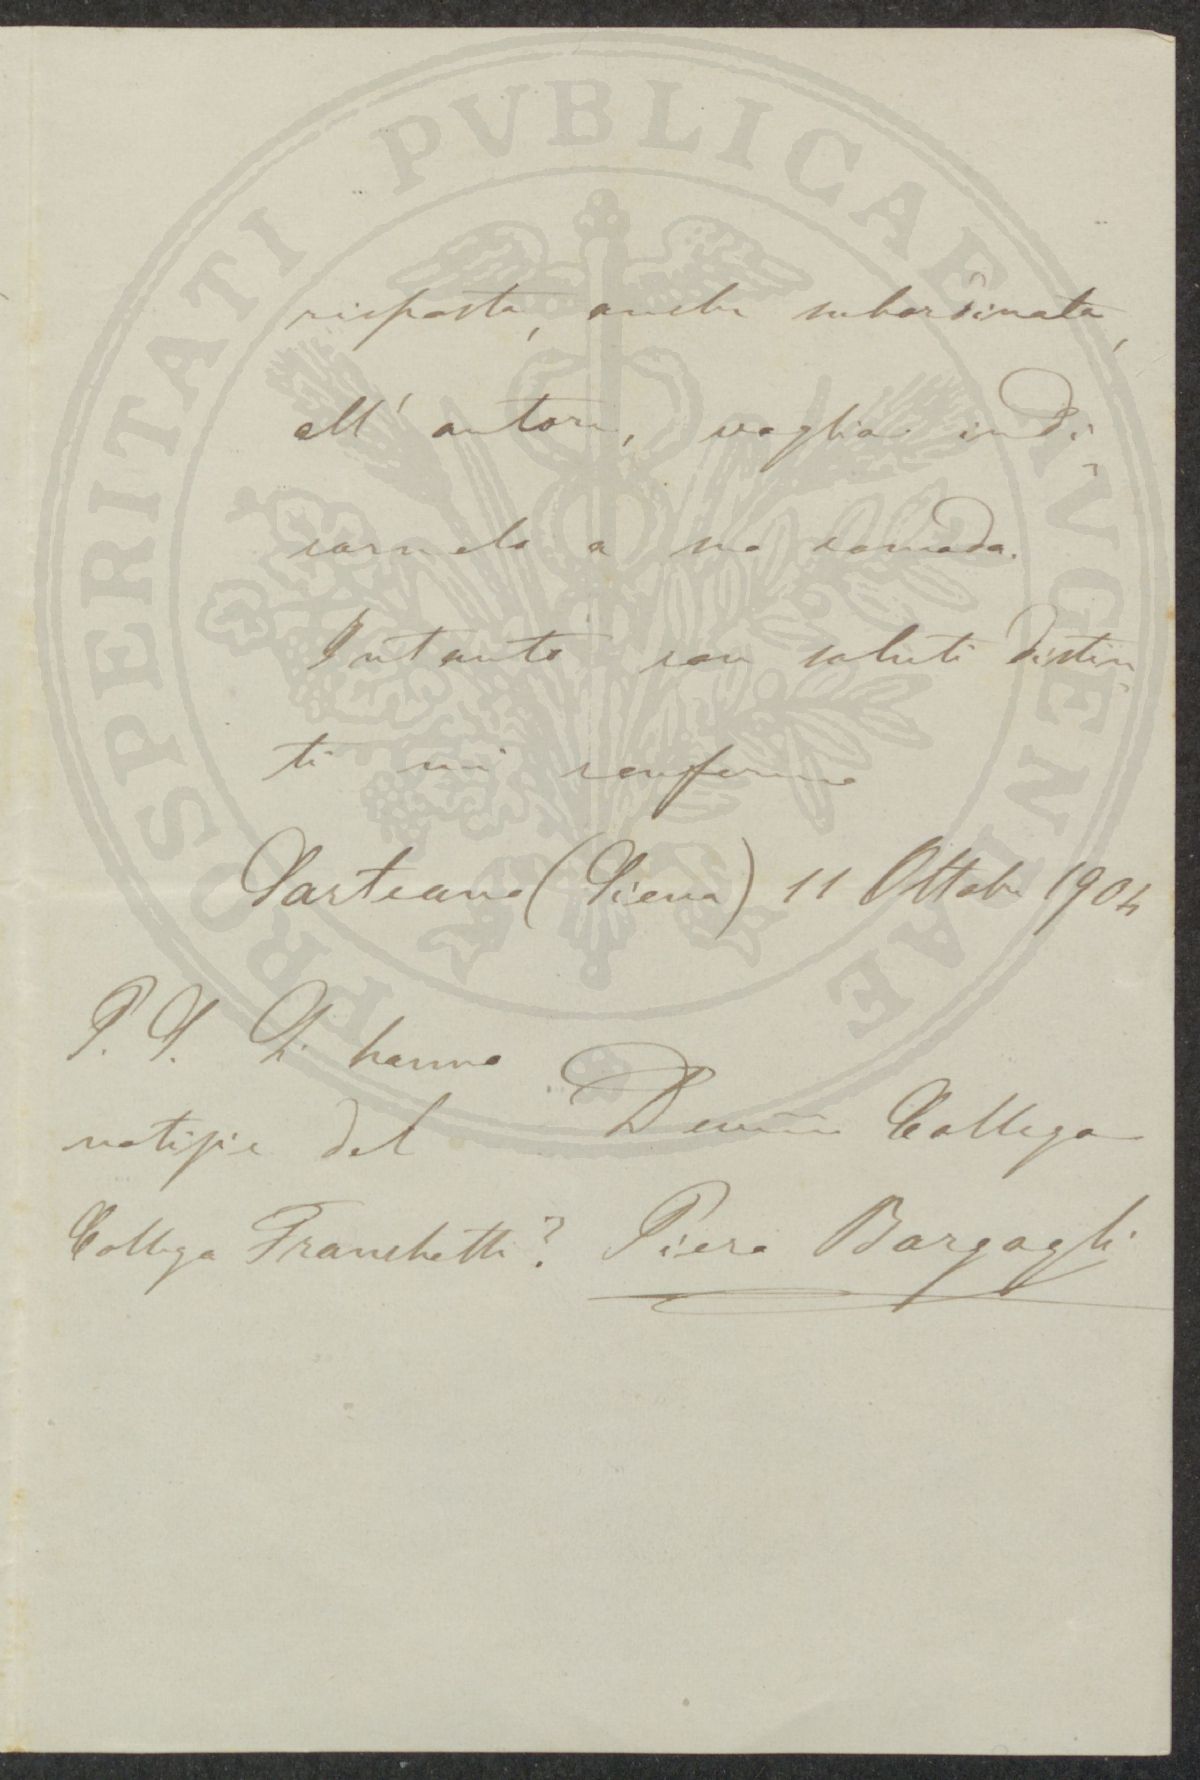 PROSPERITATI PVBLICAE AVGENDAE
risposta, anche subordinata,
all' autore, voglia indi-
carmelo a suo comodo.
Intanto con saluti distin-
ti mi confermo
Sarteano (Siena) 11 Ottobe 1904
P. S. Si hanno
notizie del
Collega Franchetti?
Devmo Collega
Piero Bargagli